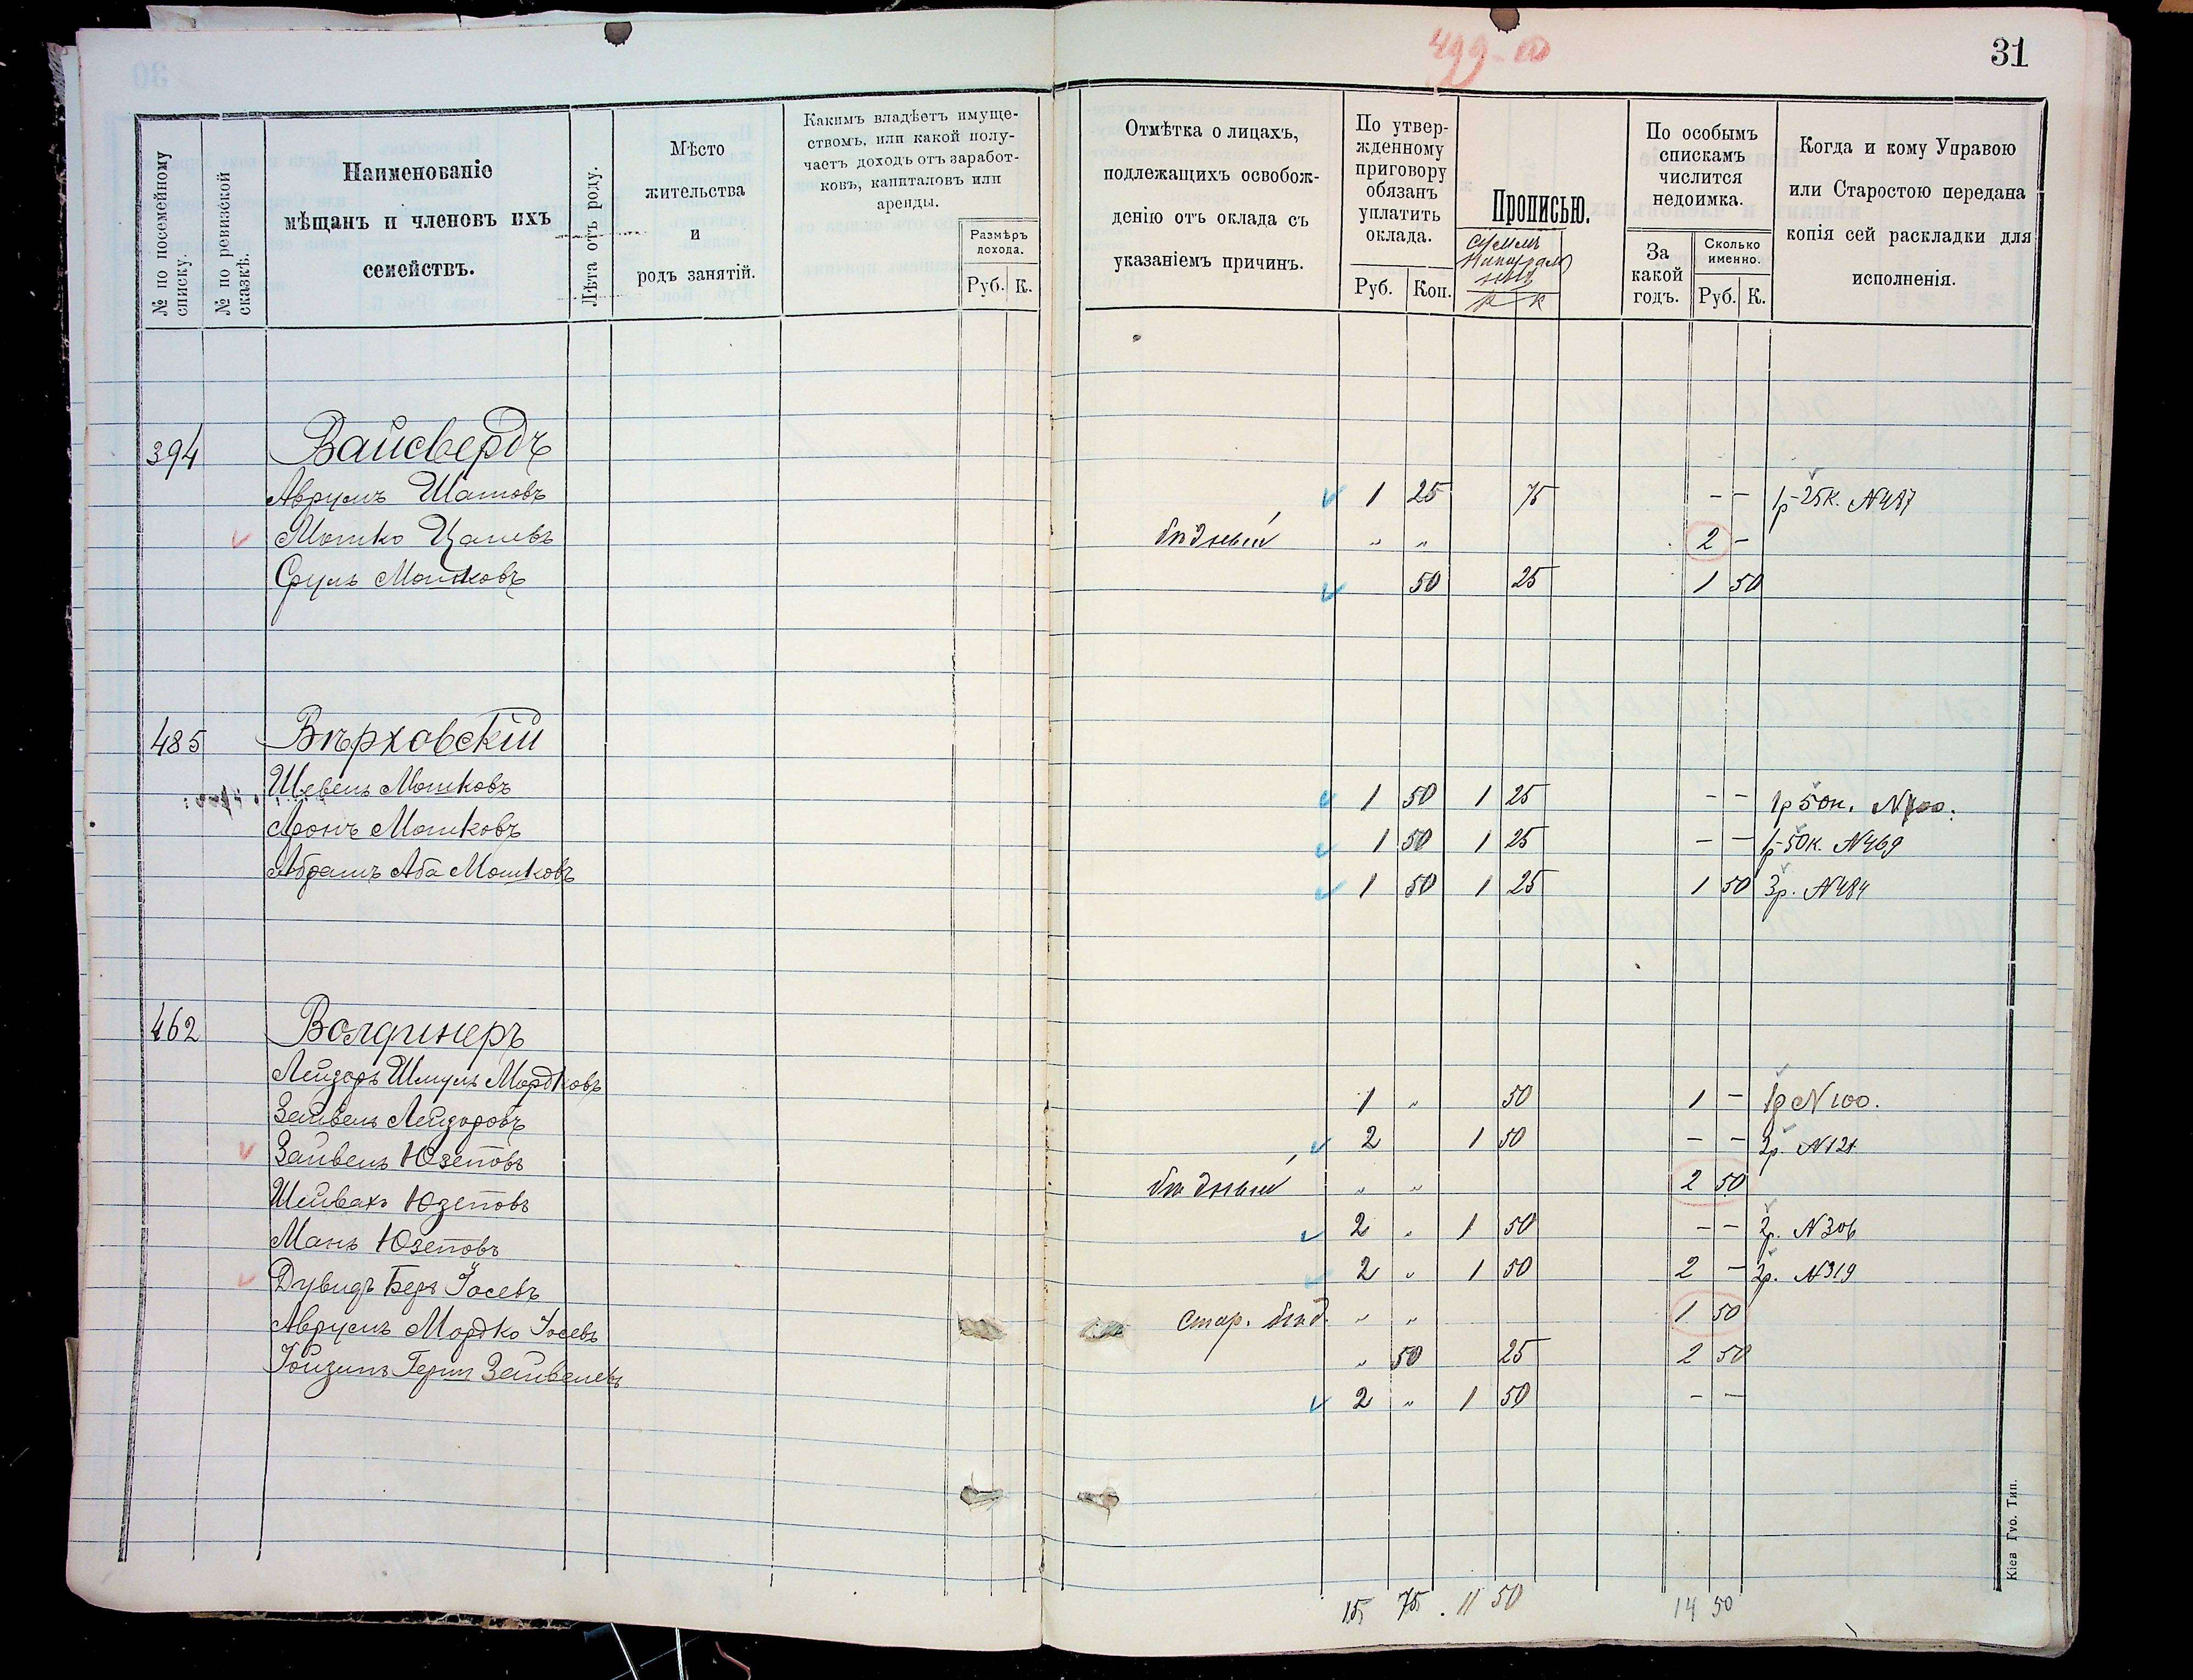 499-00
31
№ по посемейному списку.
№ по ревизской сказкѣ.
Наименованіе мѣщанъ и членовъ ихъ семействъ.
Лѣта отъ роду.
Мѣсто жительства и родъ занятій.
Какимъ владѣетъ имуще-
ствомъ, или какой полу-
чаетъ доходъ отъ заработ-
ковъ, капиталовъ или
аренды.
Размѣръ дохода.
Руб. К.
Отмѣтка о лицахъ,
подлежащихъ освобож-
денію отъ оклада съ
указаніемъ причинъ.
По утвер-
жденному
приговору
обязанъ
уплатить
оклада.
Руб. Коп.
Прописью.
р к
По особымъ
спискамъ
числится
недоимка.
За какой годъ.
Сколько именно.
Руб. К.
Когда и кому Управою
или Старостою передана
копія сей раскладки для
исполненія.
394 Вайсвердъ
Аврумъ 1 25 75 - - 1р-25к. N487
Мошко бѣдный " " 2 -
Сруль Мошковъ 50 25 1 50
485 Вѣрховскій
Шевель Мошковъ 1 50 1 25 - - 1р 50к. N100.
Аронъ Мошковъ 1 50 1 25 - - 1р-50к. N469
Абрамъ Аба Мошковъ 1 50 1 25 1 50 3р. N484
462 Волфинеръ
Лейзоръ Шмуль Мордковъ 1 " 50 1 - 1р N100.
Зайвель Лейзоровъ 2 1 50 - - 2р. N121
Зайвель Юзеповъ бѣдный " " 2 50
Шейвахъ Юзеповъ 2 " 1 50 - - 2р. N306
Мань Юзеповъ 2 " 1 50 2 - 2р. N319
Дувидъ Беръ Іосевъ стар. бѣд. " " 1 50
Аврумъ Мордко Іосевъ " 50 25 2 50
Герш Зайвелевъ 2 " 1 50 - -
15 75 11 50 14 50
Кіев Губ. Тип.